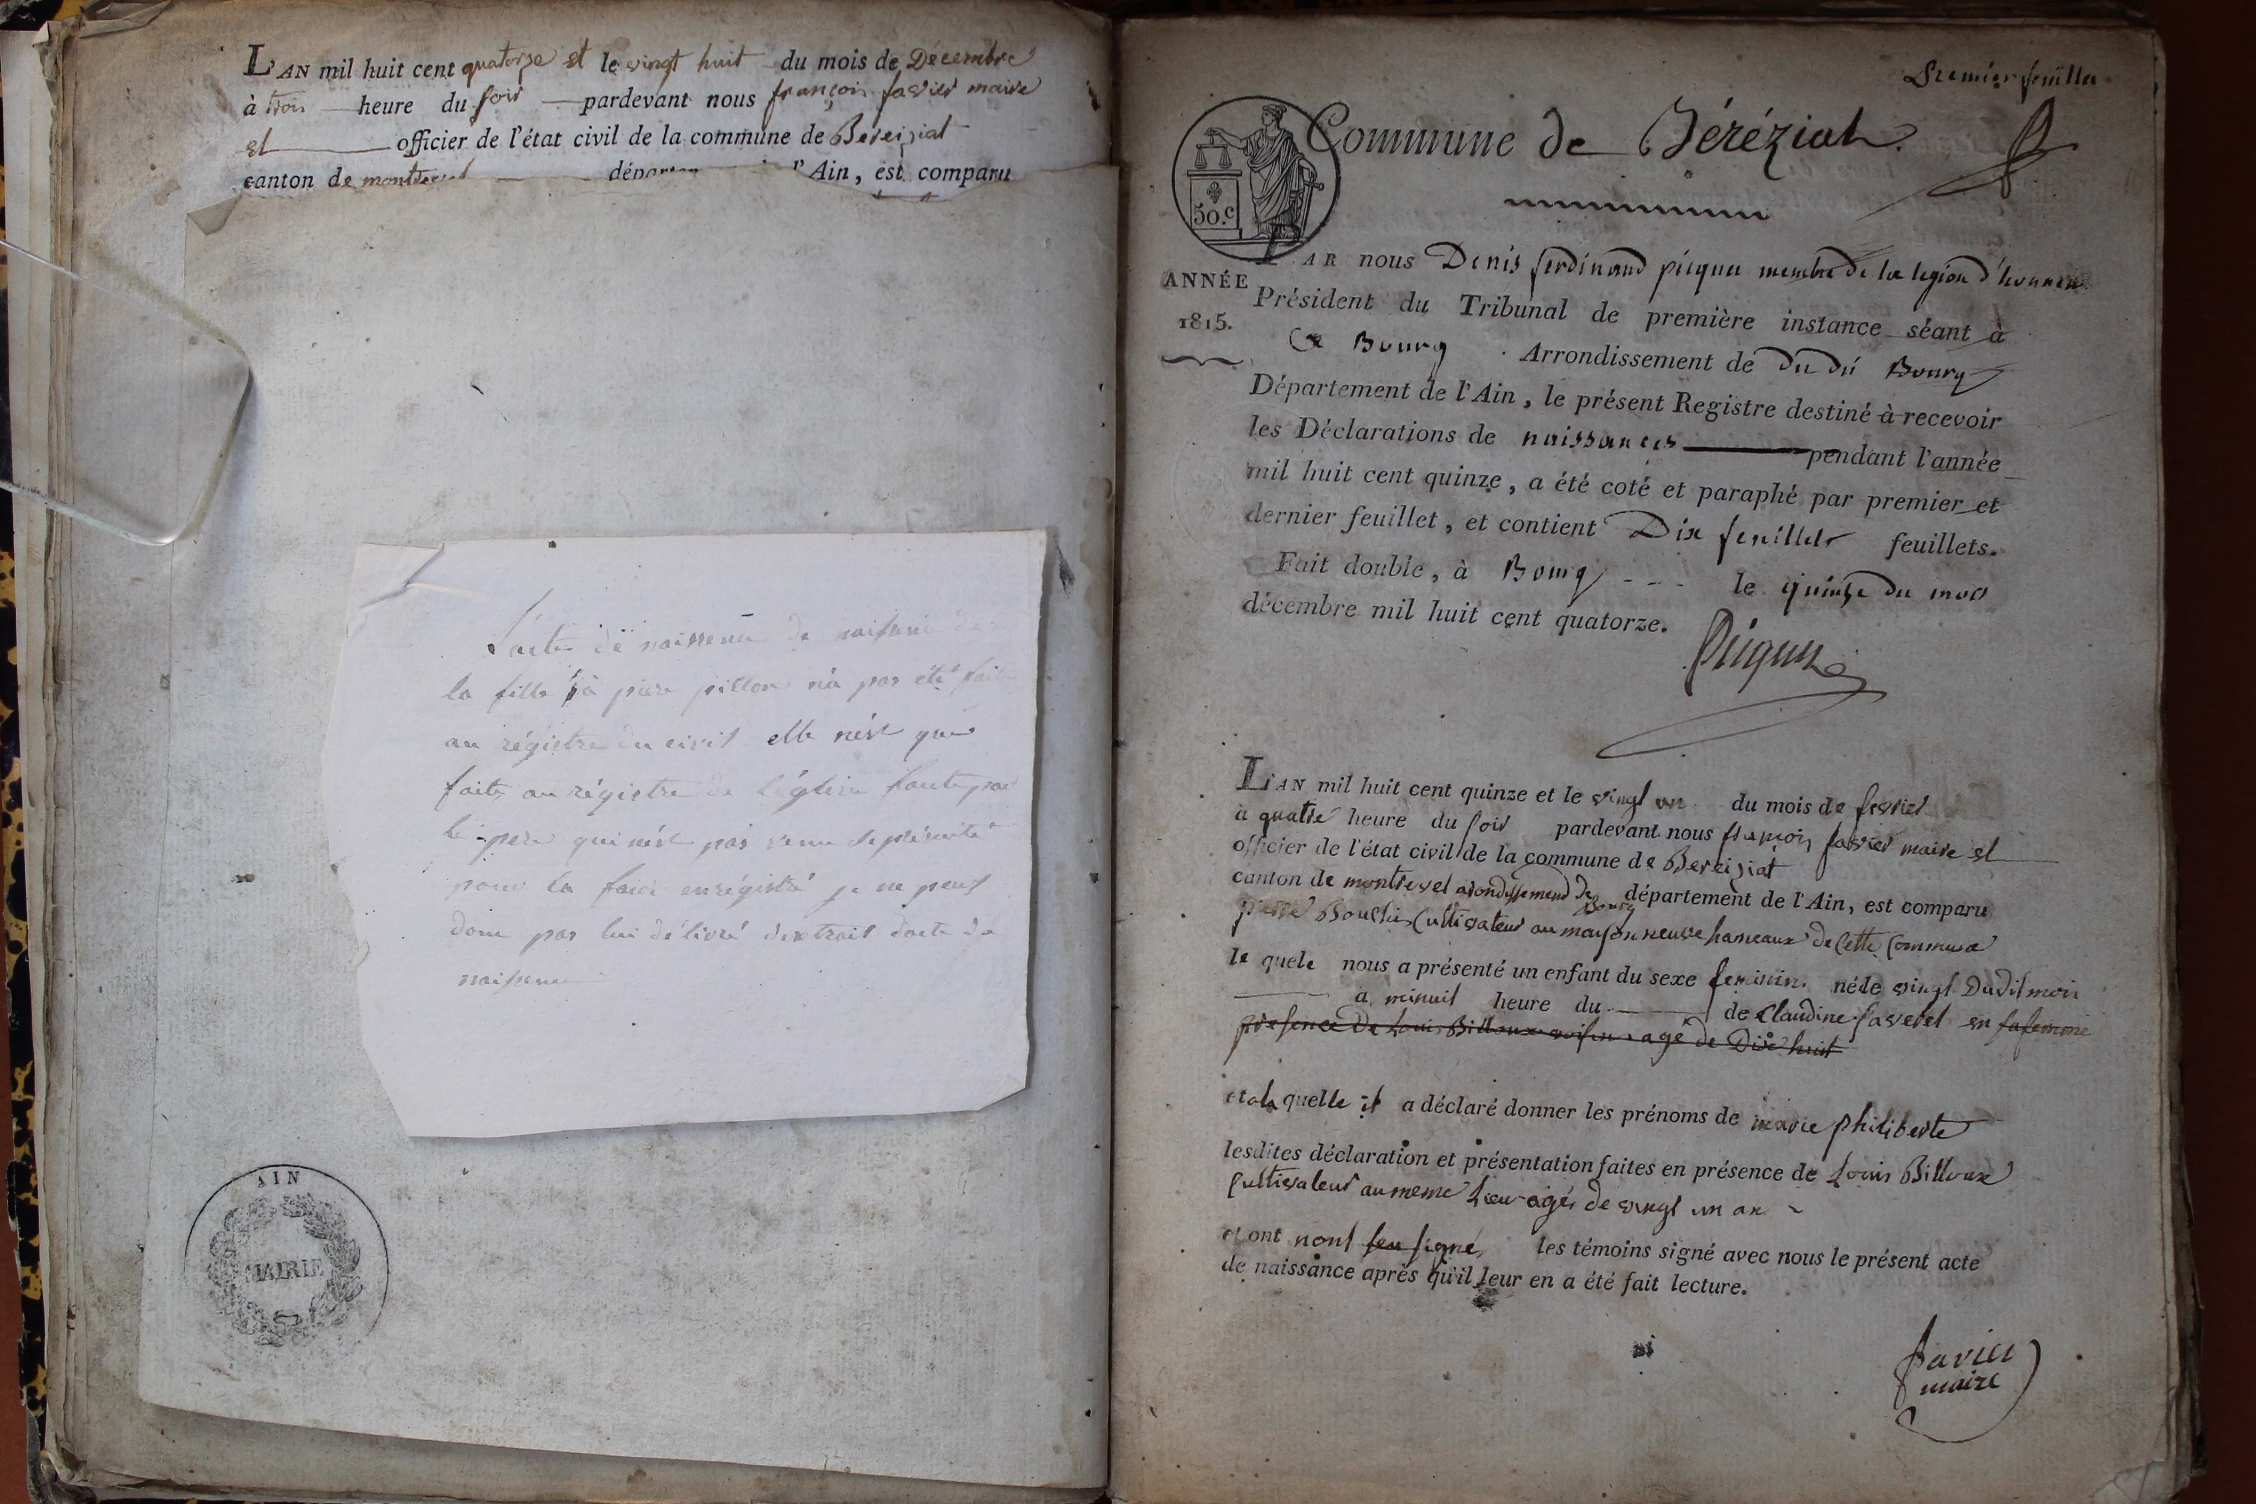 L'AN mil huit cent quatorze et le vingt huit du mois de Décembre
à trois heure du soir pardevant nous françois favier maire
et officier de l'état civil de la commune de Bereiziat
canton de montrevel l'Ain, est comparu
L'acte de naissence de naisence de
la fille à piere pillon n'a pas été faite
au régistre du civil elle n'est que
faite au régistre de l'église faute par
le pere qui n'est pas venu se présenté
pour la faire enrégistré je ne peut
donc pas lui délivré d'extrait d'acte de
naisence
AIN
MAIRIE
Premier feuillet
Commune de Béréziat.
50.c
PAR nous Denis ferdinand picquet membre de la legion d'honneur
ANNÉE
1815.
Président du Tribunal de première instance séant à
Bourg Arrondissement de du dit Bourg
Département de l'Ain, le présent Registre destiné à recevoir
les Déclarations de naissances pendant l'année
mil huit cent quinze, a été coté et paraphé par premier et
dernier feuillet, et contient Dix feuillets feuillets.
Fait double, à Bourg le quinze du mois
décembre mil huit cent quatorze.
Picquet
L'AN mil huit cent quinze et le vingt un du mois de fevrier
à quatre heure du soir pardevant nous françois favier maire et
officier de l'état civil de la commune de Bereiziat
canton de montrevel arondissement de Bourg département de l'Ain, est comparu
pierre Cultivateur au mayson neuve hameaux de Cette Commune
le quele nous a présenté un enfant du sexe feminin né le vingt Dudit mois
a minuit heure du de Claudine favelet en sa femme
presence De Louis Billoux voisin agé de Dix huit
et a la quelle il a déclaré donner les prénoms de marie philiberte
lesdites déclaration et présentation faites en présence de Louis Billoux
Cultivateur au meme Lieu agés de vingt un an
et ont nont seu signé les témoins signé avec nous le présent acte
de naissance après qu'il leur en a été fait lecture.
favier
maire